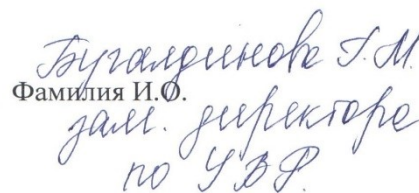 Бугалдинова Г.М.
Фамилия И.О.
зам. директора
по УВР.